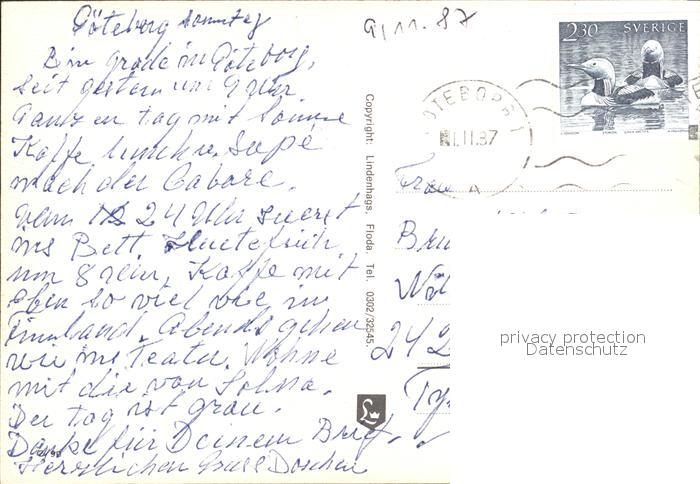 Göteborg Sonntag
Bin grade in Göteborg,
seit gestern um 9 Uhr.
Ganz en tag mit Sonne
Kaffe lunch u. Supé
nach der Cabare.
24 Uhr zuerst
ins Bett. Heute früh
um 8 Uhr, Kaffe mit
eben so viel wie in
Finnland. Abends gehen
wir ins Teater. Wohne
mit die von Solna.
Der tag ist grau.
Danke für Deinem Brief.
Herzlichen Gruss Doschen
9/11. 87
2.30 SVERIGE
GÖTEBORG 1
.11.87
A
Copyright: Lindenhags, Floda. Tel. 0302/32545.
Frau
Bru
242
Ty
privacy protection
Datenschutz